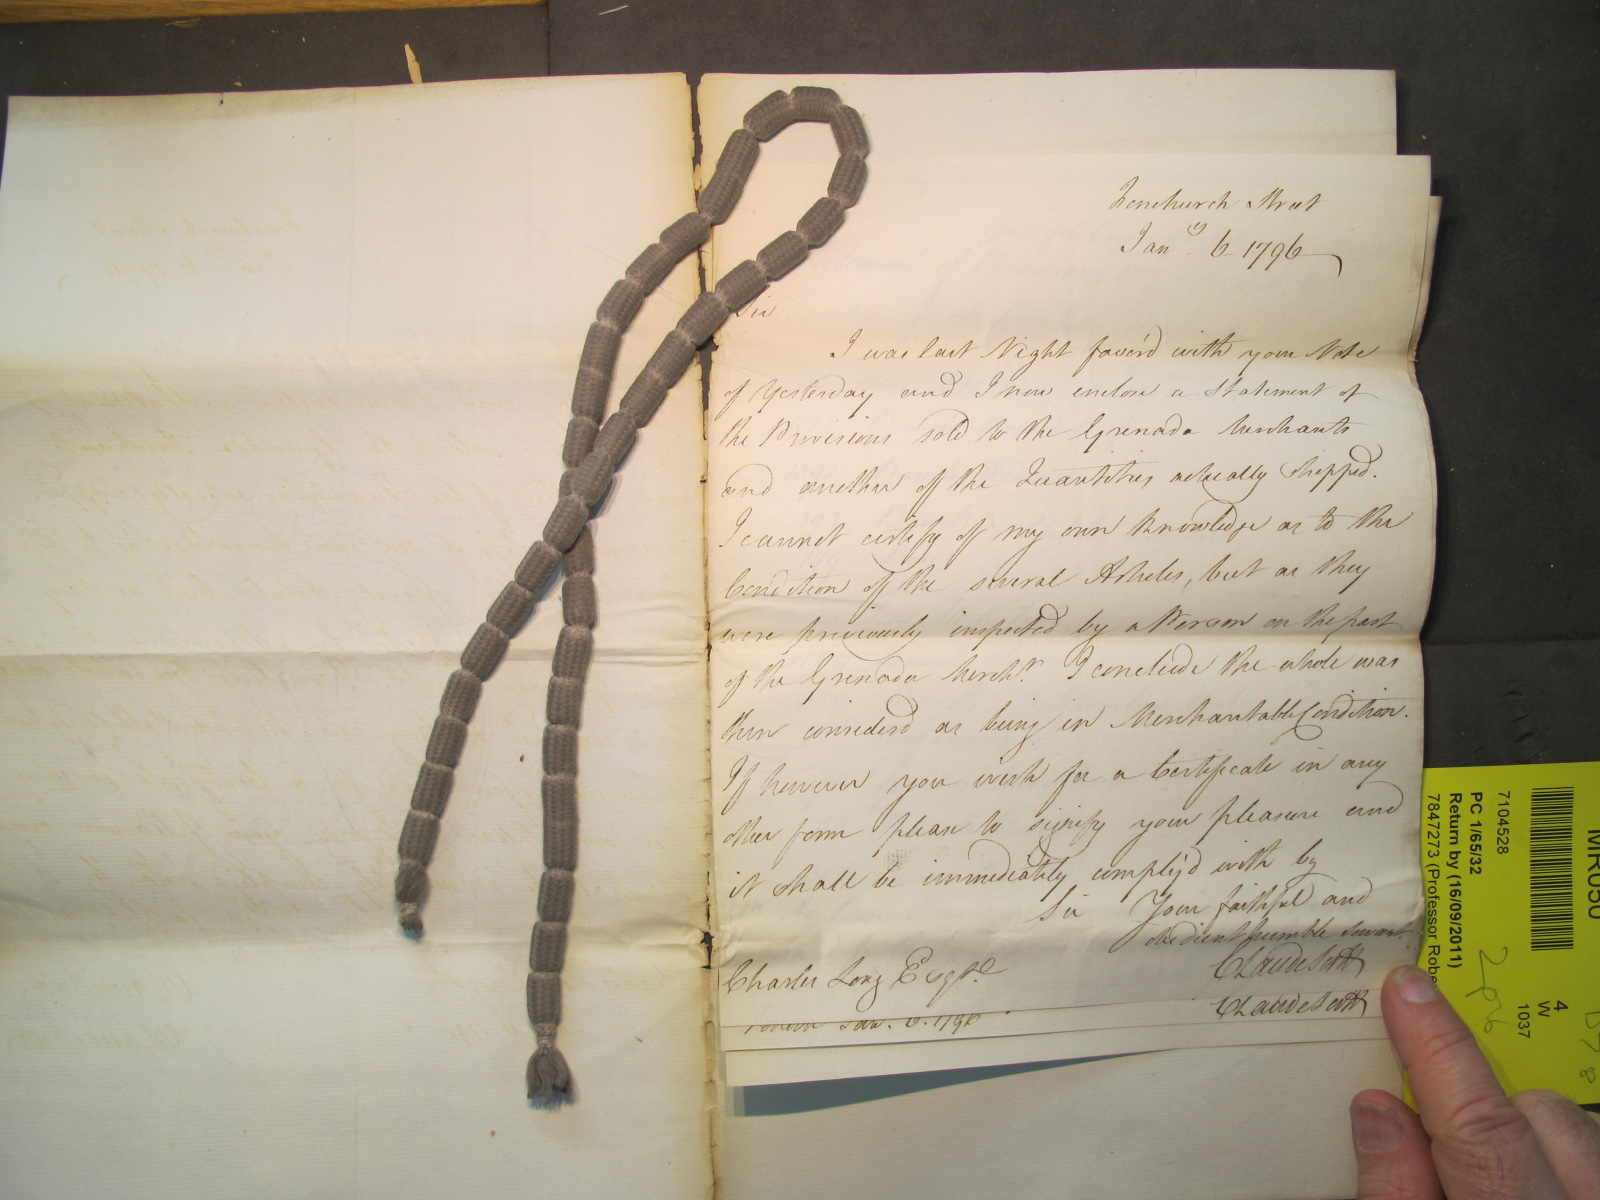 Fenchurch Street
Jan.y 6 1796
Sir
I was last Night favor'd with your Note
of Yesterday and I now enclose a Statement of
the Provisions sold to the Grenada Merchants
and another of the Quantities actually shipped.
I cannot certify of my own Knowledge as to the
Condition of the several Articles, but as they
were previously inspected by a Person on the part
of the Grenada Merch.ts I conclude the whole was
then considered as being in Merchantable Condition.
If however you wish for a Certificate in any
other form please to signify your pleasure and
it shall be immediately complyd with by
Sir Your faithful and
obedient humble Servant
Claude Scott
Charles Long Esq.re
Claude Scott
London Jan. 6. 1796
MR050
7104528
PC 1/65/32
Return by (16/09/2011)
7847273 (Professor Robe
4
W
1037